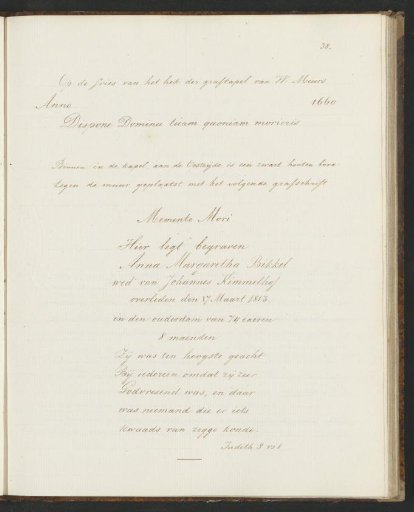 38.
Op de fries van het hek der grafkapel van W. Meurs
Anno 1660
Dispone Domine tuam quoniam morieris
Binnen in de kapel aan de Oostzijde is een zwart houten bord
tegen de muur geplaatst met het volgende grafschrift
Memento Mori
Hier legt begraven
Anna Margaretha Bikkel
wed van Johannes Kimmelhof
overleden den 17 Maart 1813
in den ouderdam van 74 eaeren
8 maenden
Zij was ten hoogste geacht
Bij iedereen omdat zij zeer
Godvresend was, en daar
was niemand die er iets
kwaads van zegge konde.
Judith 8 vs 8